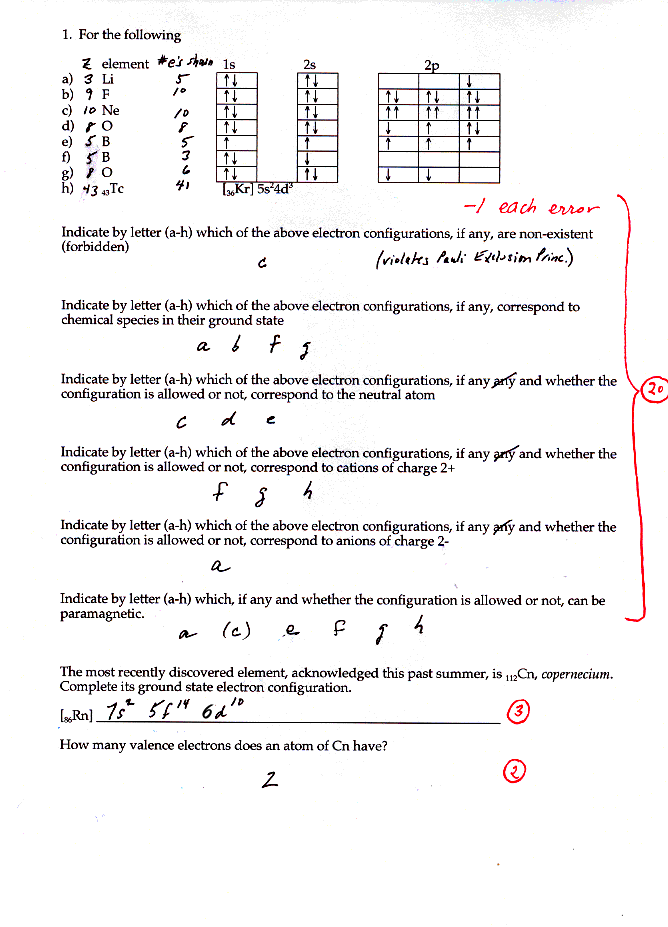 1. For the following
Z element #e's shown 1s 2s 2p
a) 3 Li 5 ↑↓ ↑↓ ↓
b) 9 F 10 ↑↓ ↑↓ ↑↓ ↑↓ ↑↓
c) 10 Ne 10 ↑↓ ↑↓ ↑↑ ↑↑ ↑↑
d) 8 O 8 ↑↓ ↑↓ ↓ ↑ ↑↓
e) 5 B 5 ↑ ↑ ↑ ↑ ↑
f) 5 B 3 ↑↓ ↓
g) 8 O 6 ↑↓ ↑↓ ↓ ↓
h) 43 ₄₃Tc 41 [₃₆Kr] 5s²4d³
-1 each error
Indicate by letter (a-h) which of the above electron configurations, if any, are non-existent
(forbidden)
c (violates Pauli Exclusion Princ.)
Indicate by letter (a-h) which of the above electron configurations, if any, correspond to
chemical species in their ground state
a b f g
Indicate by letter (a-h) which of the above electron configurations, if any any and whether the
configuration is allowed or not, correspond to the neutral atom
20
c d e
Indicate by letter (a-h) which of the above electron configurations, if any any and whether the
configuration is allowed or not, correspond to cations of charge 2+
f g h
Indicate by letter (a-h) which of the above electron configurations, if any any and whether the
configuration is allowed or not, correspond to anions of charge 2-
a
Indicate by letter (a-h) which, if any and whether the configuration is allowed or not, can be
paramagnetic.
a (c) e f g h
The most recently discovered element, acknowledged this past summer, is ₁₁₂Cn, copernecium.
Complete its ground state electron configuration.
[₈₆Rn] 7s² 5f¹⁴ 6d¹⁰ 3
How many valence electrons does an atom of Cn have?
2 2